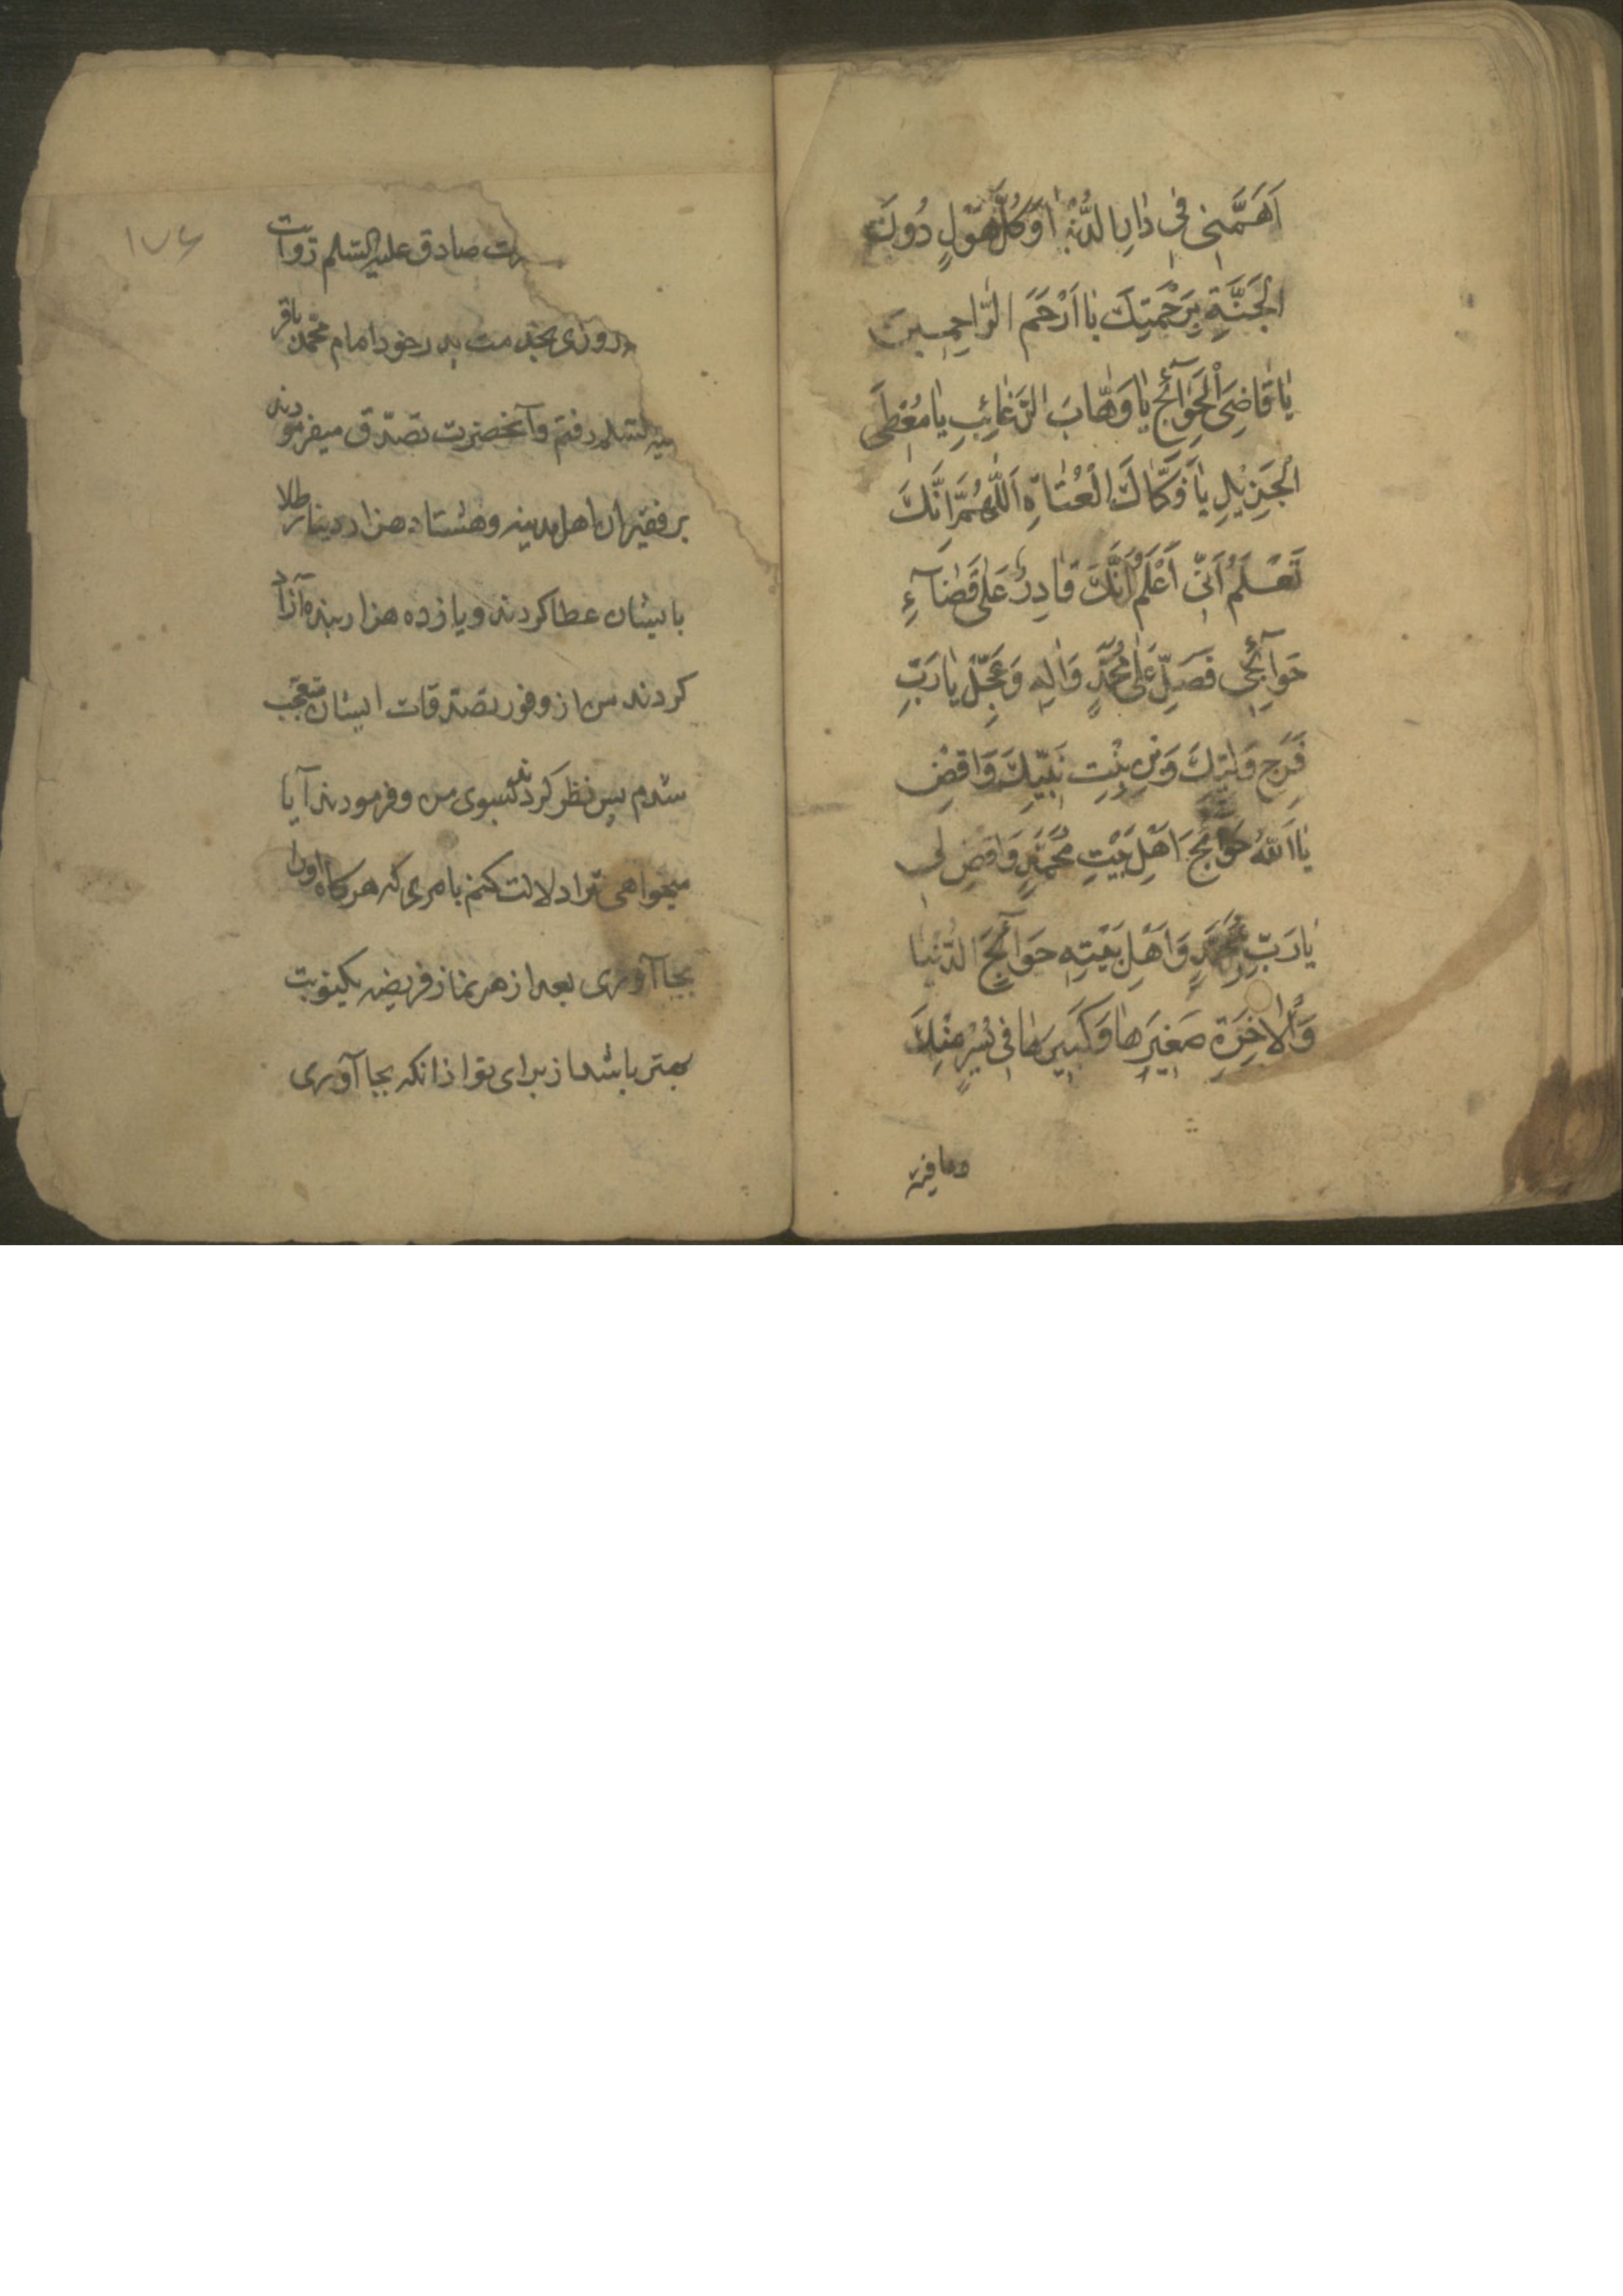 اَهَمَّنِی فِی دٰارِ الدُّنْیٰا وَكُلَّ هَوْلٍ دُونَ
الْجَنَّةِ بِرَحْمَتِكَ یٰا اَرْحَمَ الرّٰاحِمِینَ
یٰا قٰاضِیَ الْحَوٰآئِجِ یٰا وَهّٰابَ الرَّغٰائِبِ یٰا مُعْطِیَ
الْجَزِیْلِ یٰا فَكّٰاكَ الْعُتٰاةِ اَللّٰهُمَّ اِنَّكَ
تَعْلَمُ اَنّی اَعْلَمُ اَنَّكَ قٰادِرٌ عَلٰی قَضٰآءِ
حَوٰآئِجِی فَصَلِّ عَلٰی مُحَمَّدٍ وَاٰلِهِ وَعَجِّلْ یٰا رَبِّ
فَرَجَ وَلِیِّكَ وَابْنِ بِنْتِ نَبِیِّكَ وَاقْضِ
یٰا اَللّٰهُ حَوٰآئِجَ اَهْلِ بَیْتِ مُحَمَّدٍ وَاقْضِ لِی
یٰا رَبِّ مُحَمَّدٍ وَاَهْلِ بَیْتِهِ حَوٰآئِجَ الدُّنْیٰا
وَالْاٰخِرَةِ صَغِیرِهٰا وَكَبِیرِهٰا فِی یُسْرٍ مِنْكَ
وعافیة
۱۷۶
رت صادق علیه السلم روایت
روزی بخدمت پدر خود امام محمد باقر
علیه السلم رفتم و آنحضرت تصدّق میفرمودند
بر فقیران اهل مدینه و هشتاد هزار دینار طلا
بایشان عطا کردند و یازده هزار بنده آزاد
کردند من از وفور تصدقات ایشان متعجب
شدم پس نظر کردند بسوی من و فرمودند آیا
میخواهی ترا دلالت کنم بامری که هرکاه اورا
بجا آوری بعد از هر نماز فریضه یکنوبت
بهتر باشد از برای تو از انکه بجا آوری